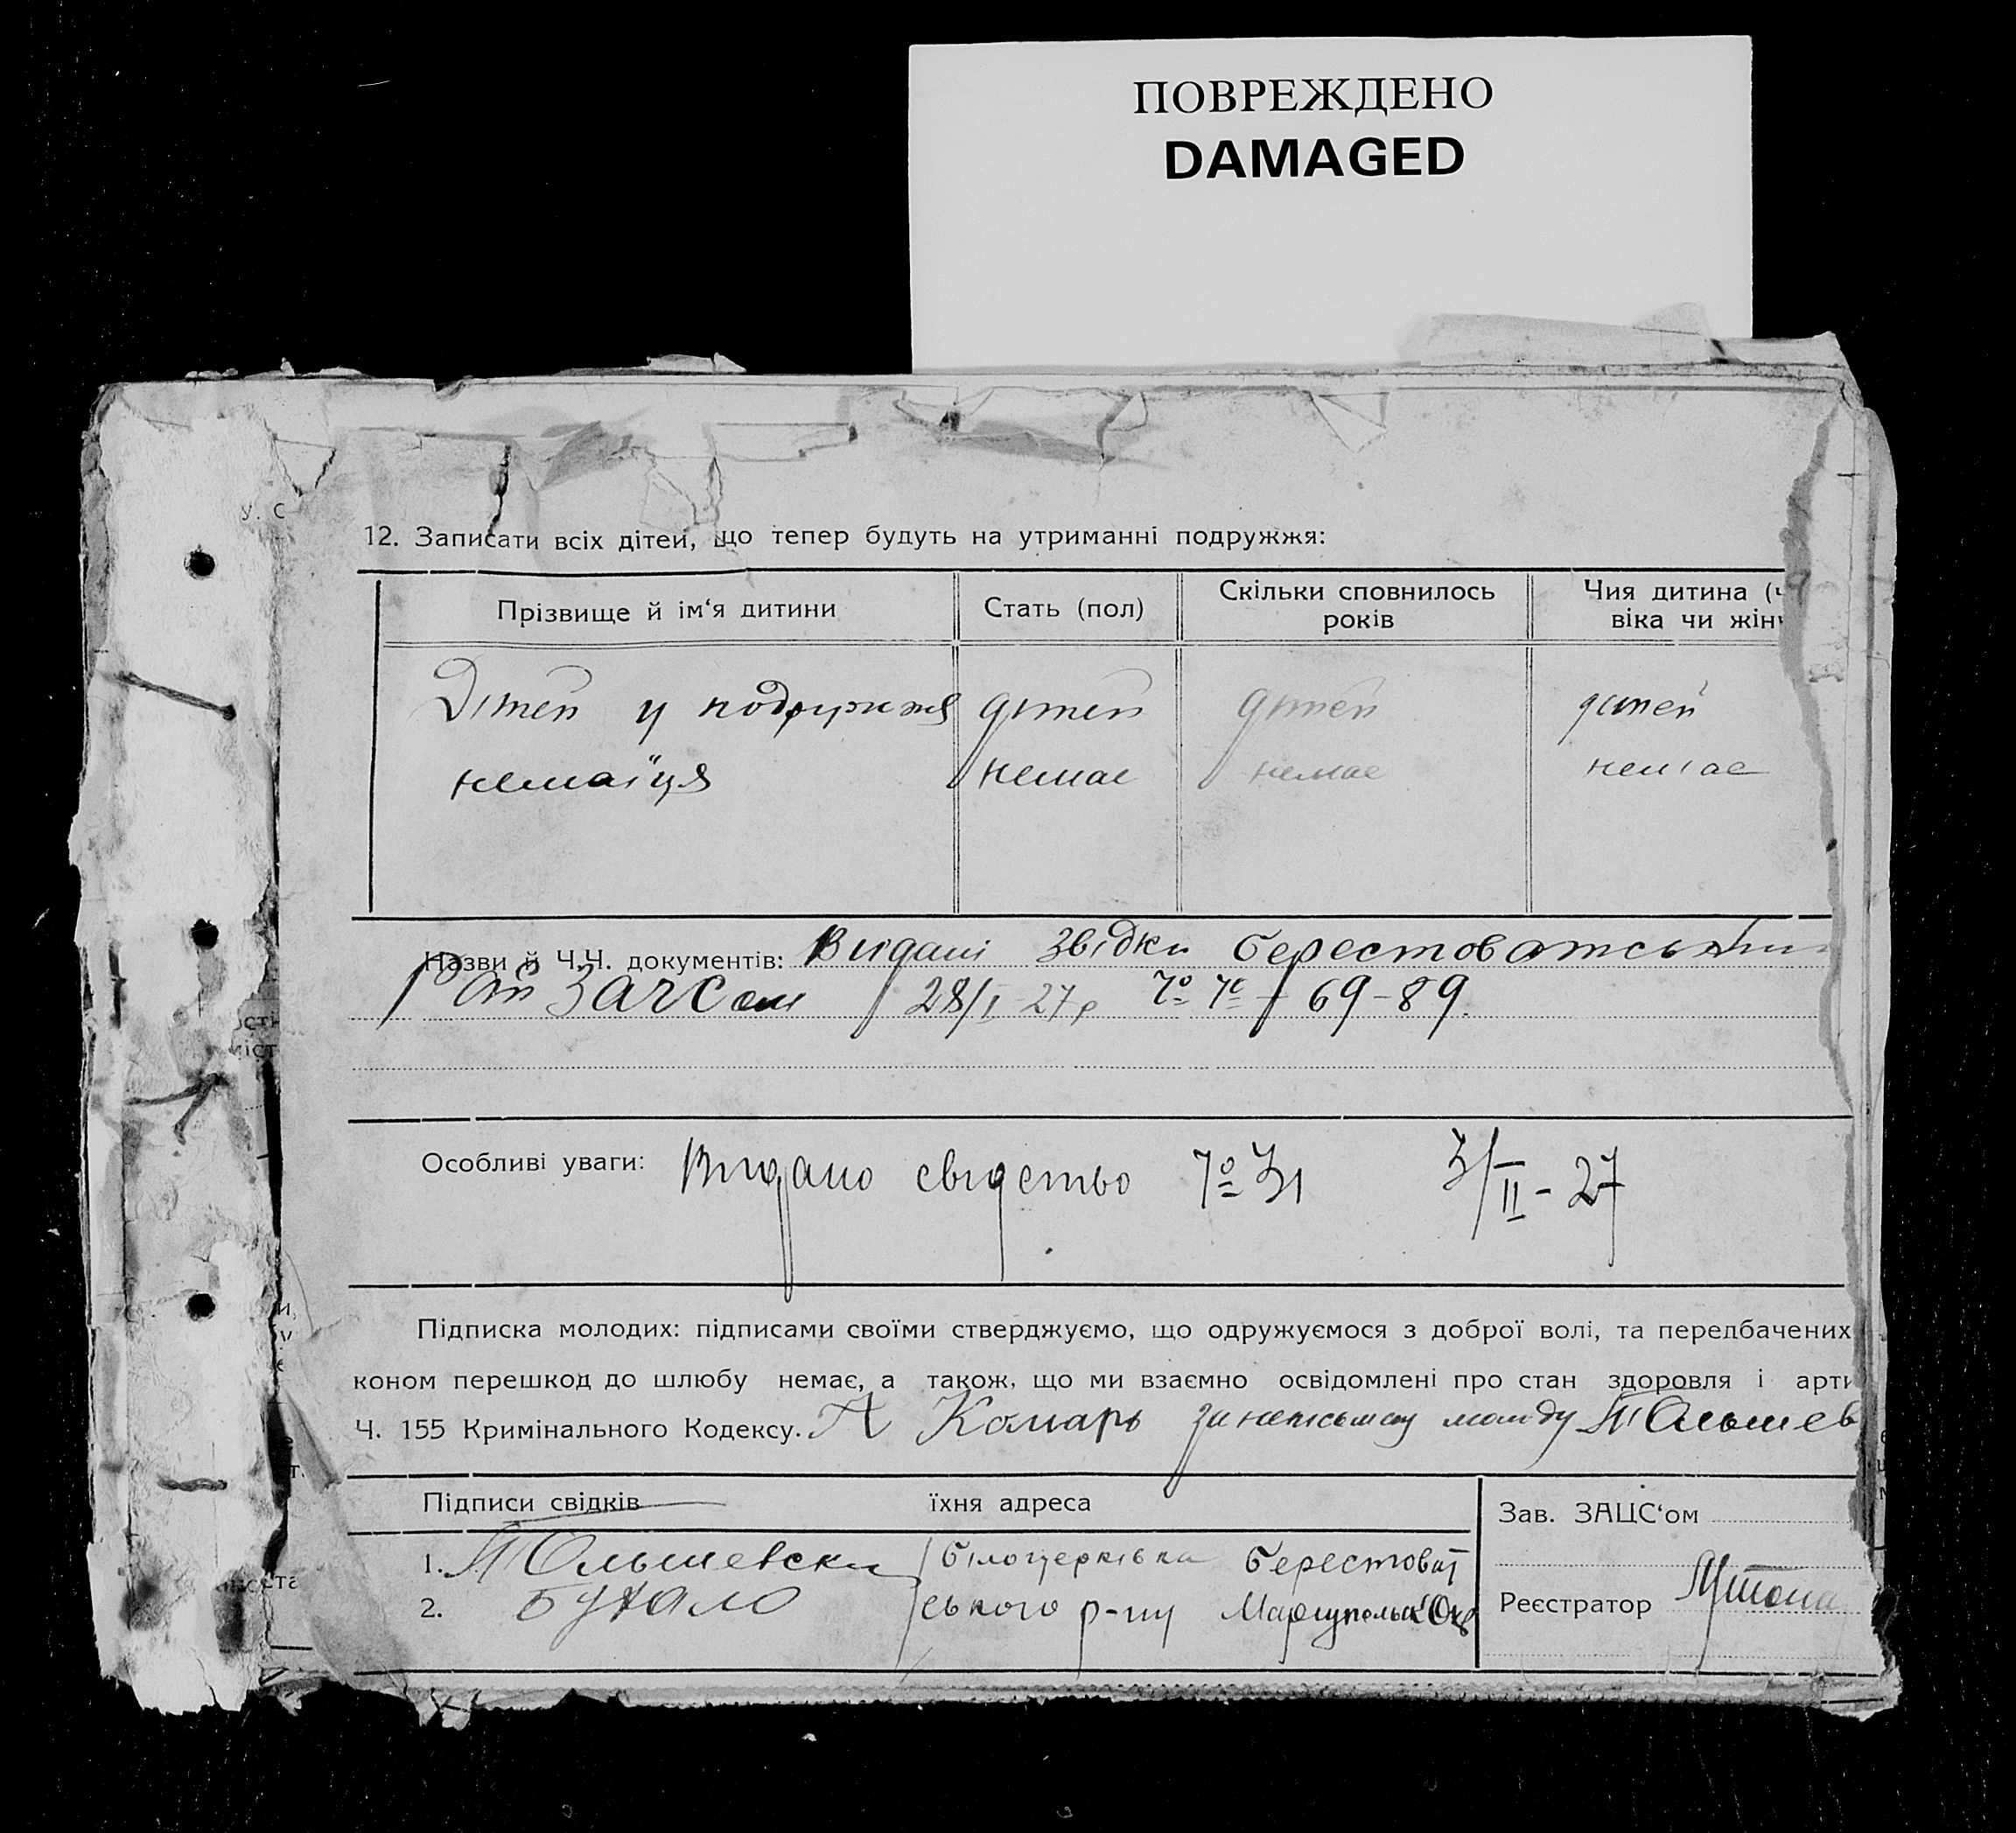 ПОВРЕЖДЕНО
DAMAGED
У. С
12. Записати всіх дітей, що тепер будуть на утриманні подружжя:
Прізвище й ім‘я дитини Стать (пол) Скільки сповнилось років Чия дитина (ч віка чи жін
Дітей у подружжя дітей дітей дітей
немаїця немає немає немає
Назви й Ч.Ч. документів: Видані звідки Берестоватським
Рай ЗАГСом 28/I 27р № № 69-89.
Особливі уваги: Видано свідетво № 31 3/II-27
Підписка молодих: підписами своїми стверджуємо, що одружуємося з доброї волі, та передбачених
коном перешкод до шлюбу немає, а також, що ми взаємно освідомлені про стан здоровля і арти
Ч. 155 Кримінального Кодексу. Комарь за неписьмену молоду Ольшев
Підписи свідків їхня адреса Зав. ЗАЦС‘ом
1. Ольшевски Білоцерківка Берестоват
2. Бухало ського р-ну Маріупольск Окр Реєстратор